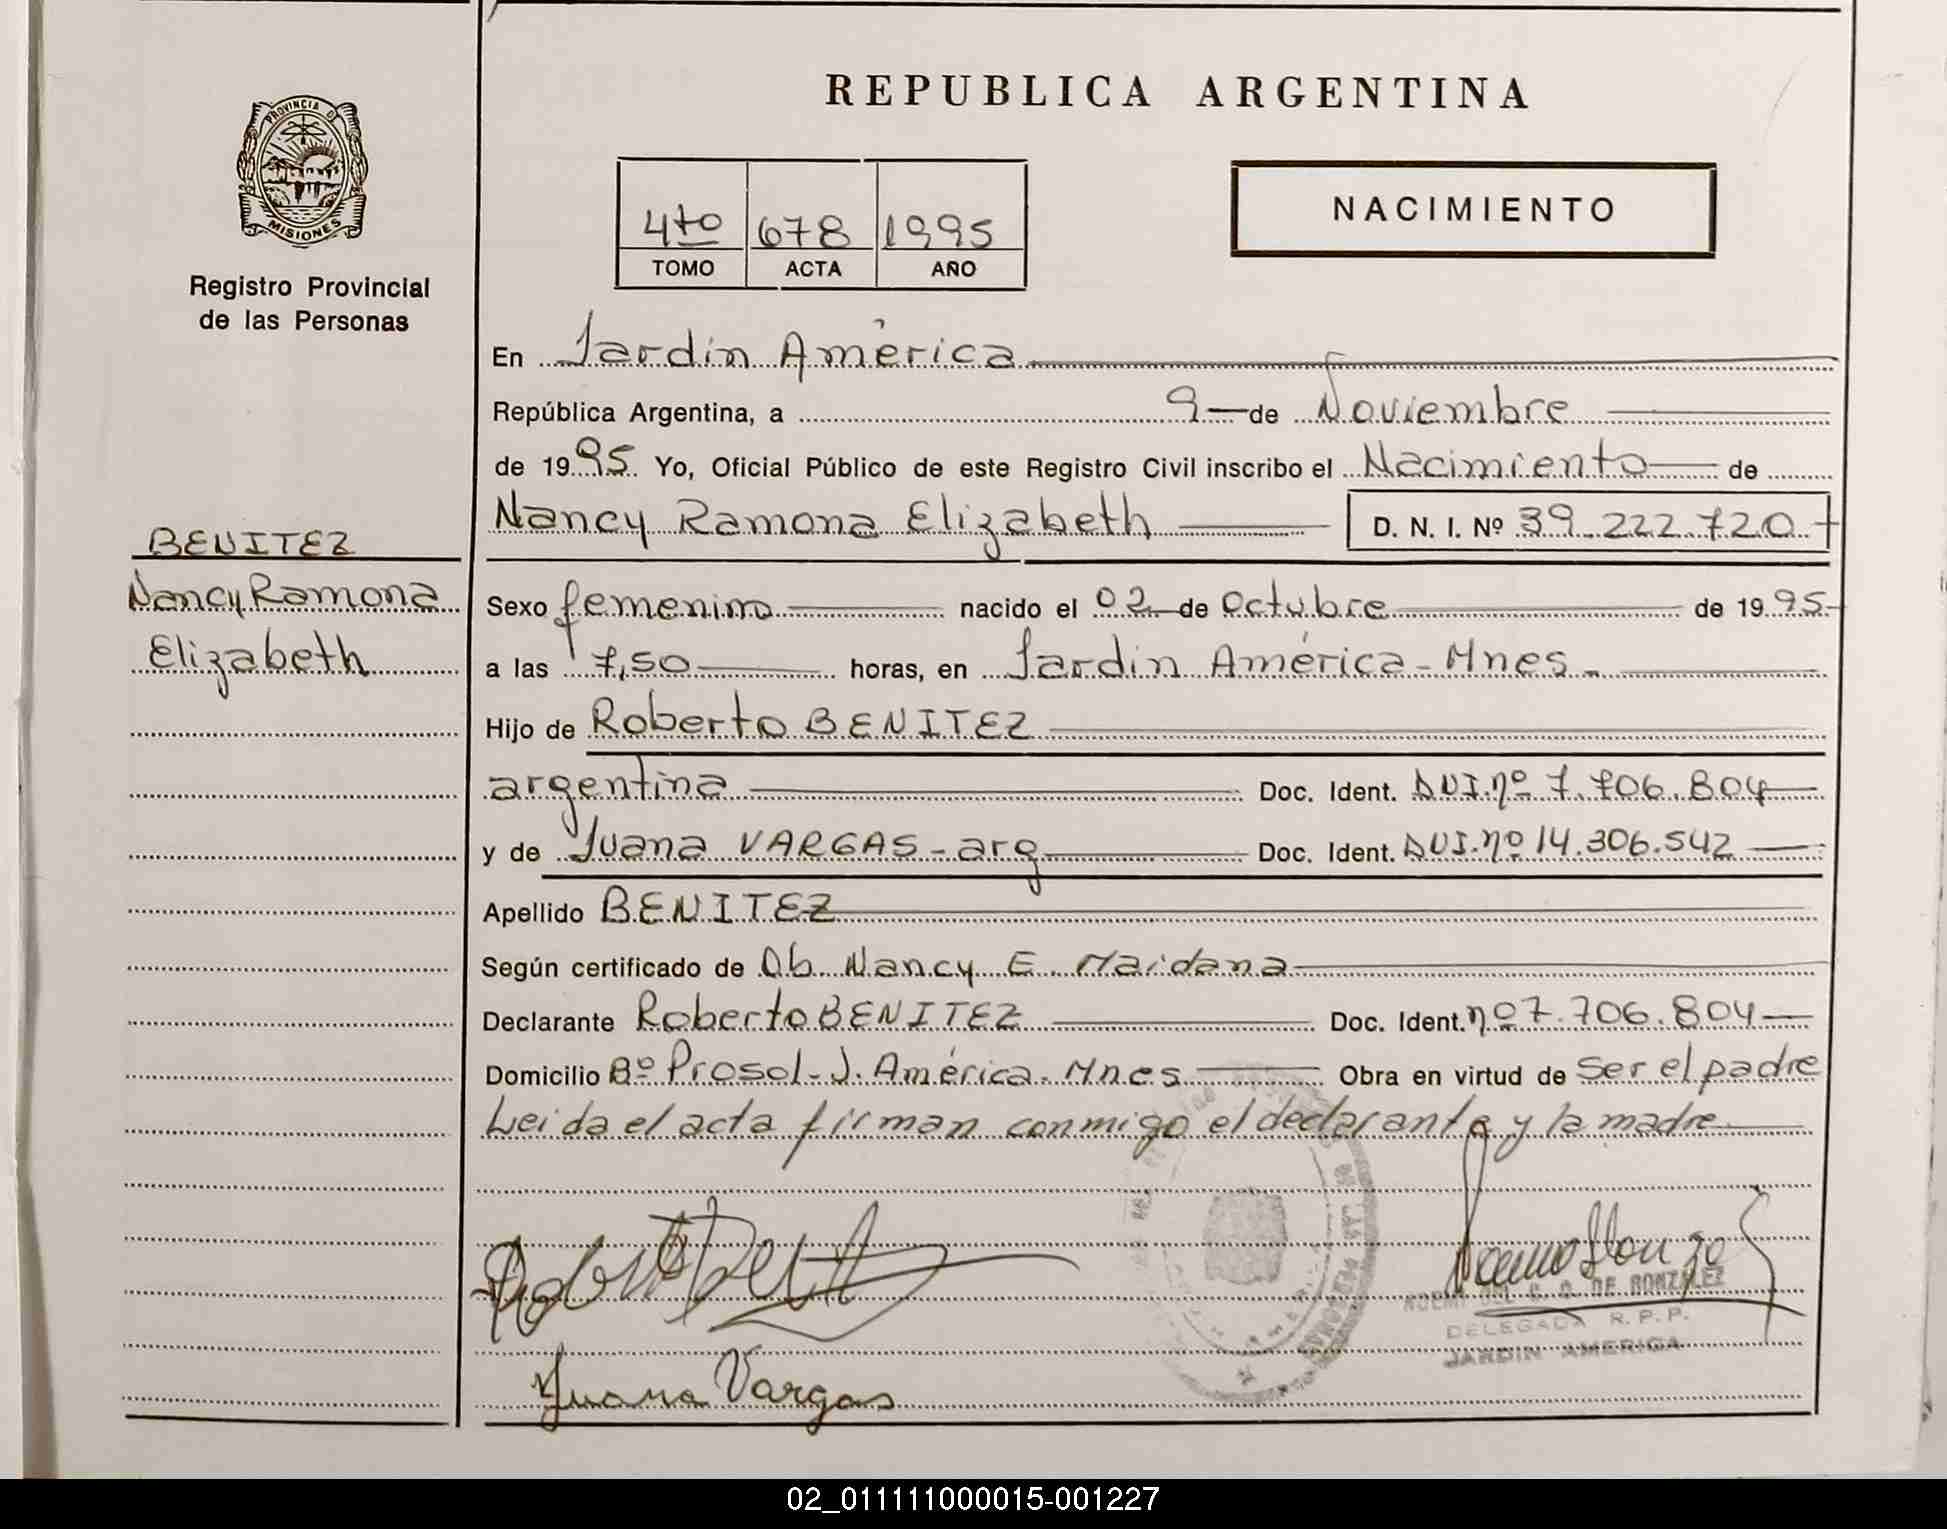 REPUBLICA ARGENTINA
PROVINCIA DE
MISIONES
Registro Provincial
de las Personas
4to 678 1995
TOMO ACTA AÑO
NACIMIENTO
En Jardín América
República Argentina, a 9 de Noviembre
de 1995 Yo, Oficial Público de este Registro Civil inscribo el Nacimiento de
Nancy Ramona Elizabeth D. N. I. Nº 39.222.720
BENITEZ
Nancy Ramona
Elizabeth
Sexo femenino nacido el 02 de Octubre de 1995
a las 7,50 horas, en Jardin América - Mnes.
Hijo de Roberto BENITEZ
argentina Doc. Ident. DNI.nº 7.706.804
y de Juana VARGAS - arg Doc. Ident. DNI.nº 14.306.542
Apellido BENITEZ
Según certificado de Ob. Nancy E. Maidana
Declarante Roberto BENITEZ Doc. Ident. nº 7.706.804
Domicilio Bº Prosol - J. América. Mnes Obra en virtud de Ser el padre
Leida el acta firman conmigo el declarante y la madre
DE LAS PERSONAS
NOEMI DEL C. O. DE GONZALEZ
DELEGADA R. P. P.
JARDIN AMERICA
Juana Vargas
02_011111000015-001227